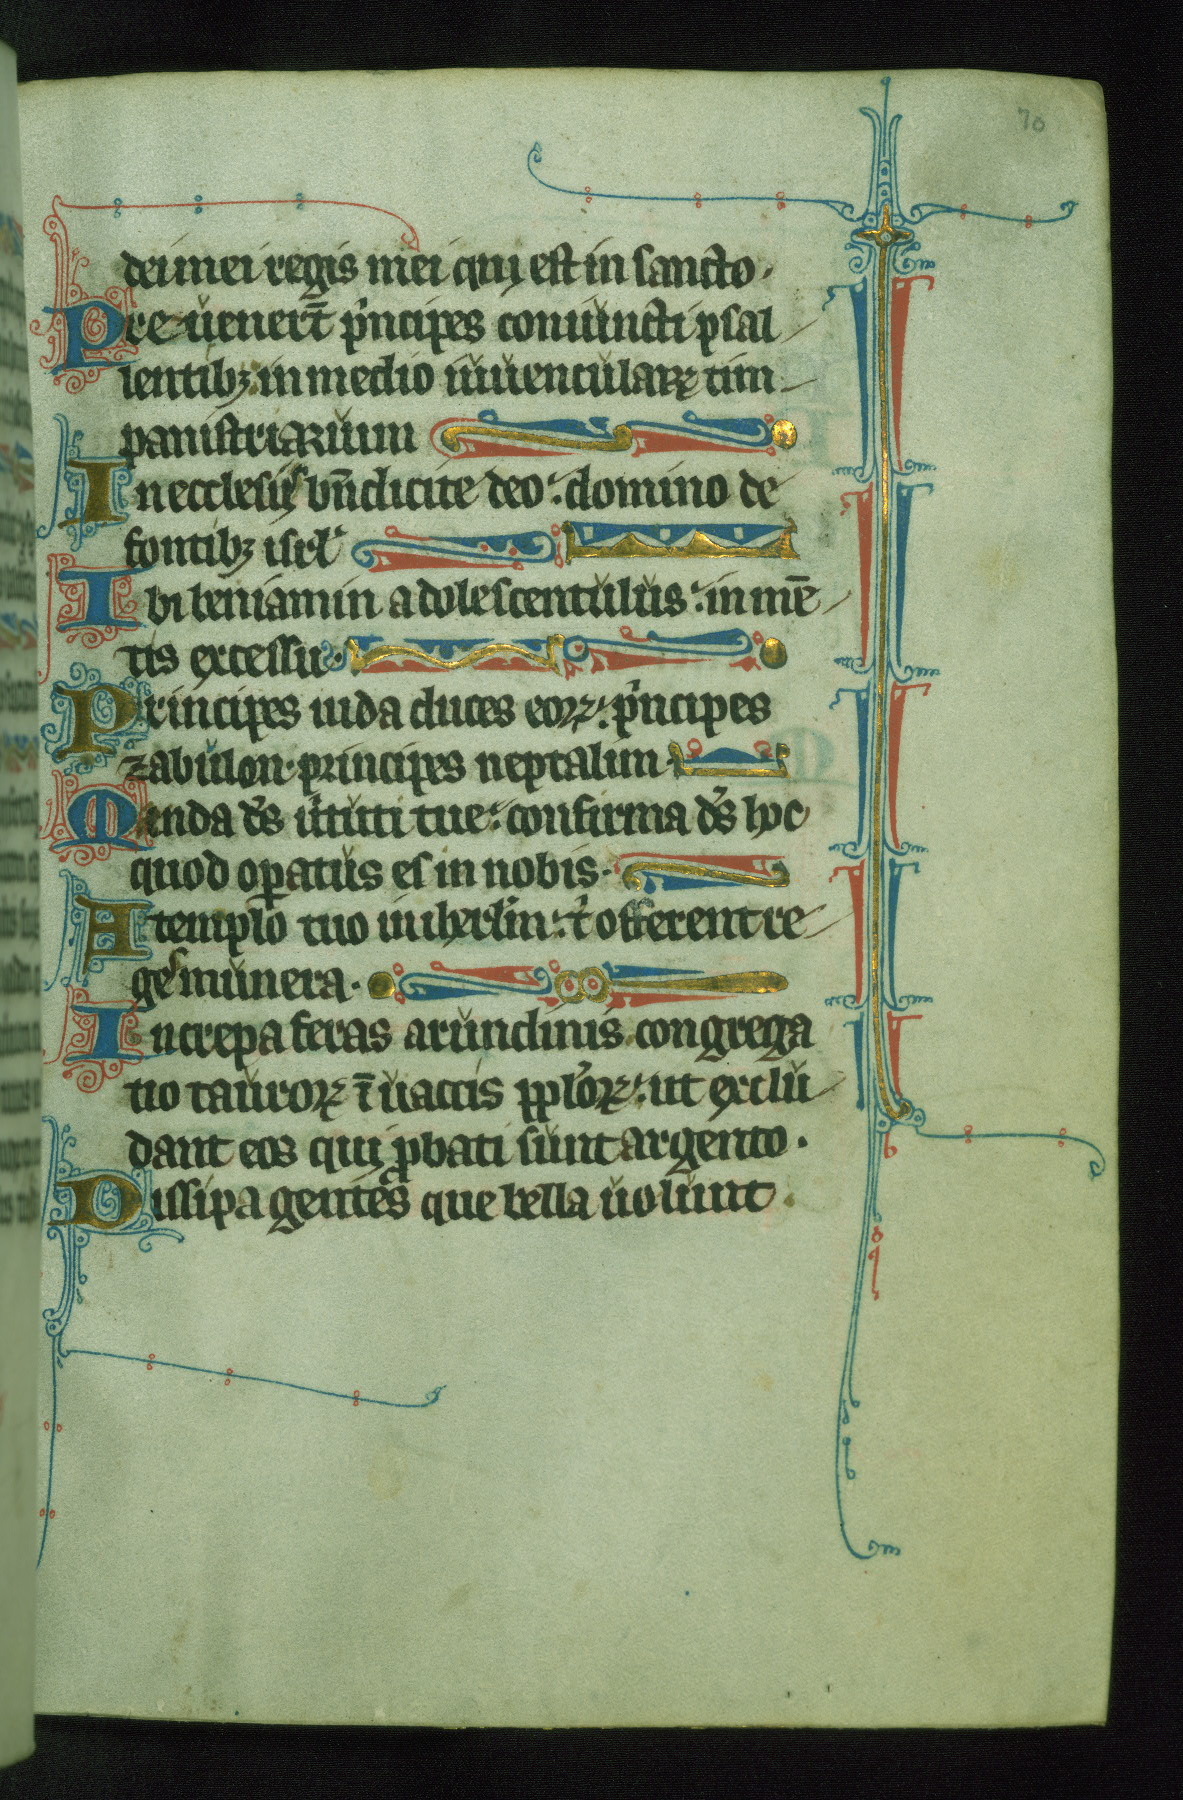 70
dei mei regis mei qui est in sancto·
Preuenert̄ p̍ncipes coniuncti psal
lentibꝫ in medio iuuencularꝝ tim
panistriarum
In ecclesijs bn̄dicite deo: domino de
fontibꝫ isrl̓
Ibi beniamin adolescentulus: in mē
tis excessu·
Principes iuda duces eoꝝ: p̍ncipes
zabulon· principes neptalim·
Manda d̄s u̍tuti tue: confirma d̄s hoc
quod oꝑatus es in nobis·
A templo tuo in iherl̄m: t̍ offerent re
ges munera·
Increpa feras arundinis congrega
tio tauroꝝ ī uaccis pp̄loꝝ: ut exclu
dant eos qui ꝓbati sunt argento·
Dissipa gentes que bella uolunt